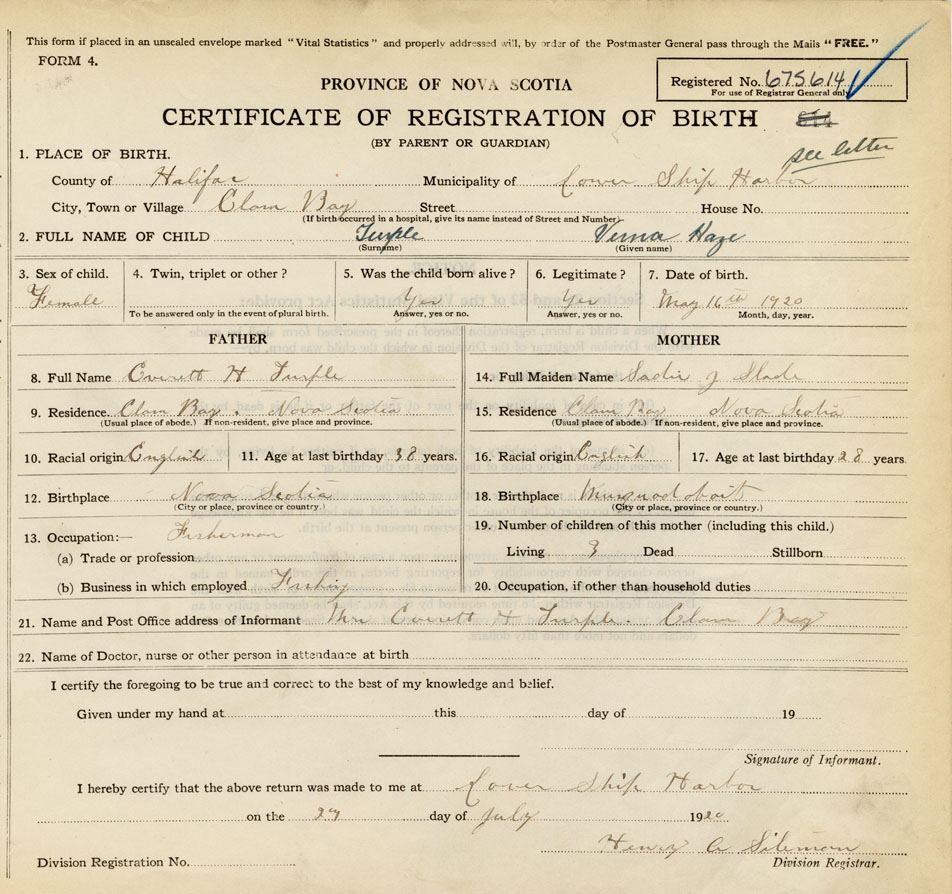 This form if placed in an unsealed envelope marked "Vital Statistics" and properly addressed will, by order of the Postmaster General pass through the Mails "FREE."
FORM 4.
PROVINCE OF NOVA SCOTIA
Registered No. 675614
For use of Registrar General only
CERTIFICATE OF REGISTRATION OF BIRTH
(BY PARENT OR GUARDIAN)
see letter
1. PLACE OF BIRTH.
County of Halifax Municipality of Lower Ship Harbor
City, Town or Village Clam Bay Street House No.
(If birth occurred in a hospital, give its name instead of Street and Number)
2. FULL NAME OF CHILD Turple Verna Haze
(Surname) (Given name)
3. Sex of child. 4. Twin, triplet or other? 5. Was the child born alive? 6. Legitimate? 7. Date of birth.
Female Yes Yes May 16th 1920
To be answered only in the event of plural birth. Answer, yes or no. Answer, yes or no. Month, day, year.
FATHER
8. Full Name Everett H Turple
9. Residence. Clam Bay. Nova Scotia
(Usual place of abode.) If non-resident, give place and province.
10. Racial origin English 11. Age at last birthday 38 years.
12. Birthplace Nova Scotia
(City or place, province or country.)
13. Occupation:— Fisherman
(a) Trade or profession
(b) Business in which employed Fishing
MOTHER
14. Full Maiden Name Sadie J Slade
15. Residence Clam Bay Nova Scotia
(Usual place of abode.) If non-resident, give place and province.
16. Racial origin English 17. Age at last birthday 28 years.
18. Birthplace Musquodoboit
(City or place, province or country.)
19. Number of children of this mother (including this child.)
Living Dead Stillborn
20. Occupation, if other than household duties
21. Name and Post Office address of Informant Mrs Everett H Turple. Clam Bay
22. Name of Doctor, nurse or other person in attendance at birth
I certify the foregoing to be true and correct to the best of my knowledge and belief.
Given under my hand at this day of 19
Signature of Informant.
I hereby certify that the above return was made to me at Lower Ship Harbor
on the 27 day of July 1920
Henry A Siteman
Division Registration No. Division Registrar.